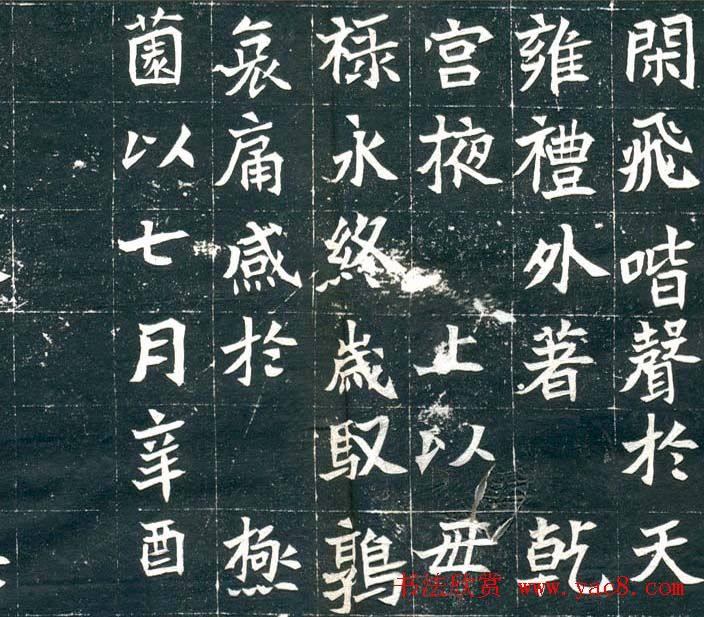 閑飛喈聲於天
雍禮外著乹
宫掖上以毋
禄永終歲馭鶉
哀痛感於極
菌以七月辛酉
书法欣赏 www.yac8.com